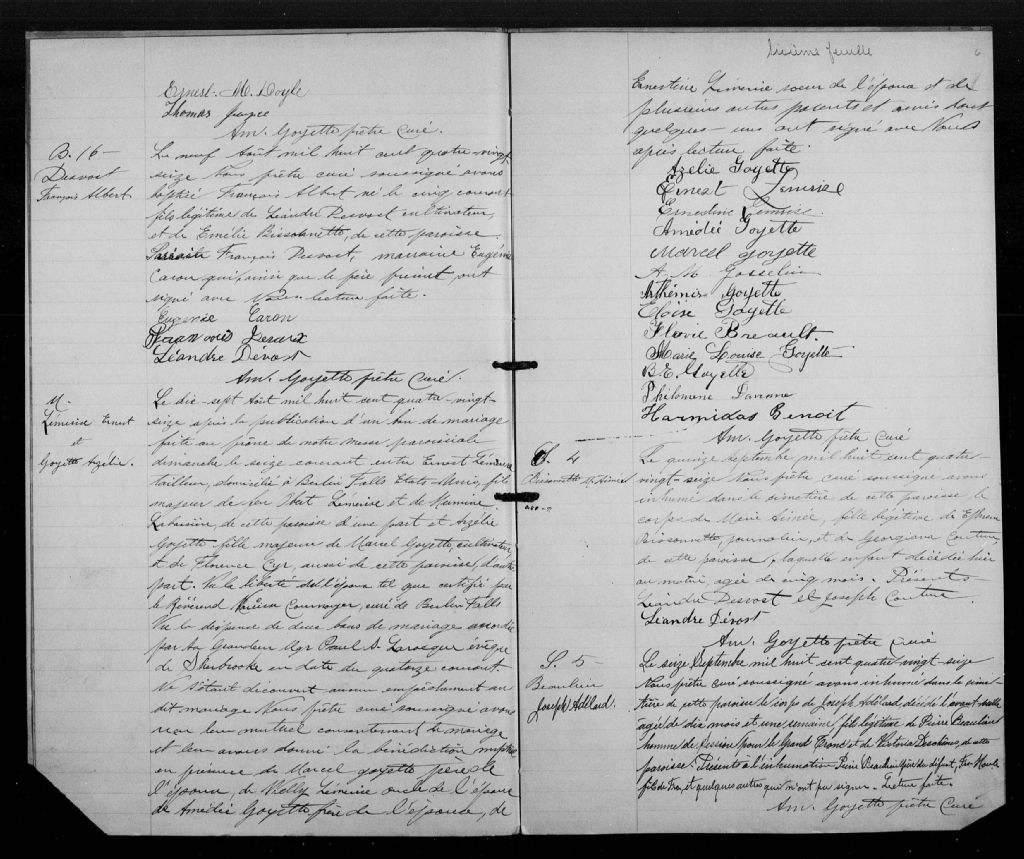 Ernest M. Doyle
Thomas
Am. Goyette ptre Curé.
B. 16 -
Desvost
François Albert
Le neuf Août mil huit cent quatre-vingt
seize Nous prêtre curé soussigné avons
baptisé François Albert né le cinq courant
fils légitime de Léandre Desvost cultivateur,
et de Emélie Bissonnette, de cette paroisse.
François Desvost, marraine Eugénie
Caron qui, ainsi que le père présent, ont
signé avec Nous. lecture faite.
Eugenie Caron
Léandre Dévost
Am. Goyette ptre Curé.
M.
Lémerise Ernest
et
Goyette Azélie.
Le dix-sept Août mil huit cent quatre-vingt-
seize après la publication d'un ban de mariage
faite au prône de notre Messe paroissiale
dimanche le seize courant entre Ernest Lémerise
tailleur, domicilié à Berlin Falls Etats-Unis, fils
majeur de feu Lémerise et de
de cette paroisse d'une part et Azélie
Goyette fille majeure de Marcel Goyette, cultivateur,
et de Florence Cyr, aussi de cette paroisse, d'autre
part. Vu la liberté de l'époux tel que certifié par
le Révérend Cournoyer, curé de Berlin Falls
Vu la dispense de deux bans de mariage accordée
par Sa Grandeur Mgr Paul S. Larocque évêque
de Sherbrooke en date du quatorze courant.
Ne s'étant découvert aucun empêchement au
dit mariage Nous prêtre curé soussigné avons
reçu leur mutuel consentement de mariage
et leur avons donné la bénédiction nuptiale
en présence de Marcel Goyette père de
l'épouse, de Lémerise oncle de l'époux
de Amédée Goyette frère de l'épouse, de
Sixième feuille
6
Ernestine Lémerise soeur de l'époux et de
plusieurs autres parents et amis dont
quelques-uns ont signé avec Nous
après lecture faite.
Azélie Goyette
Ernest Lemerise
Ernestine Lemerise
Amédée Goyette
Marcel Goyette
A. M. Gosselin
Arthémise Goyette
Eloise Goyette
Flavie Breault.
Marie Louise Goyette
B. E. Goyette
Philomene
Harmidas Benoit
Am. Goyette ptre Curé
S. 4
Bissonnette M. Aimée
Le quinze septembre mil huit cent quatre-
vingt-seize Nous prêtre curé soussigné avons
inhumé dans le cimetière de cette paroisse le
corps de Marie Aimée, fille légitime de Ephrem
Bissonnette, journalier, et de Georgiana Couture,
de cette paroisse, laquelle enfant décédée hier
au matin, agée de cinq mois. Présents
Léandre Desvost et Joseph Couture.
Léandre Dévost
Am. Goyette ptre Curé
S. 5 -
Beaulieu
Joseph Adélard.
Le seize Septembre mil huit cent quatre vingt-seize
Nous prêtre curé soussigné avons inhumé dans le cime-
tière de cette paroisse le corps de Joseph Adélard, décédé l'avant-veille
agé de dix mois et une semaine, fils légitime de Pierre Beaulieu
homme de Section pour le Grand Tronc et de Victoria de cette
paroisse. Présents à l'inhumation Pierre Beaulieu père du défunt,
et quelques autres qui n'ont pu signer. Lecture faite.
Am. Goyette ptre Curé